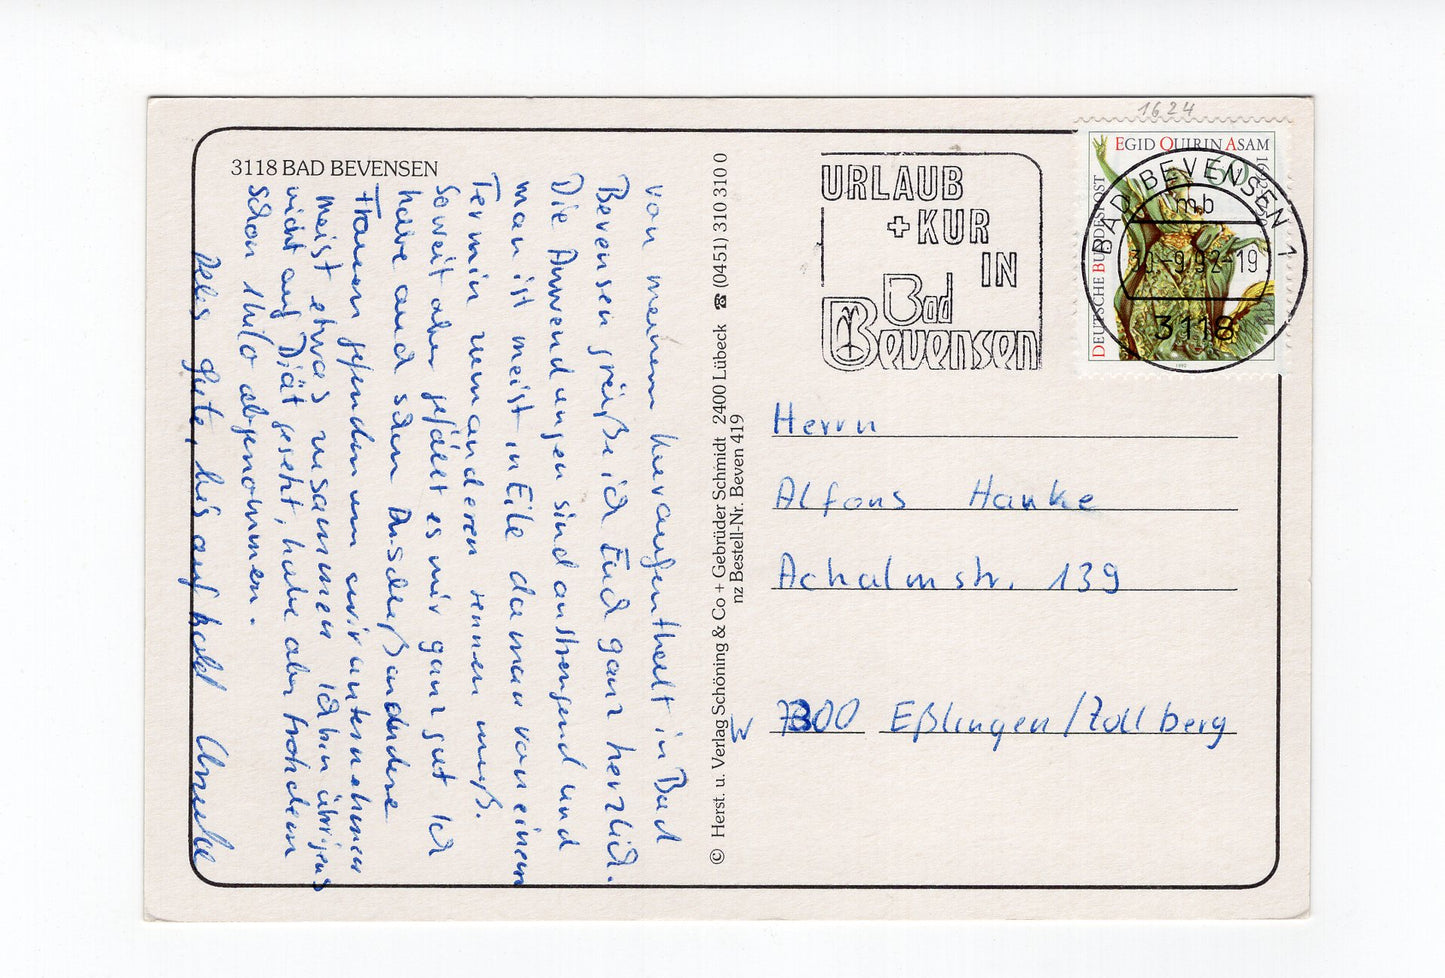 3118 BAD BEVENSEN
Von meinem Kuraufenthalt in Bad
Bevensen grüße ich Euch ganz herzlich.
Die Anwendungen sind anstrengend und
man ist meist in Eile da man von einem
Termin zum anderen rennen muß.
Soweit aber gefällt es mir ganz gut Ich
habe auch schon Anschluß an andere
Frauen gefunden um wir unternehmen
meist etwas zusammen Ich bin übrigens
nicht auf Diät gesetzt, habe aber trotzdem
schon 1 Kilo abgenommen.
Alles Gute, bis auf bald
© Herst. u. Verlag Schöning & Co + Gebrüder Schmidt 2400 Lübeck ☎ (0451) 310 310 0
nz Bestell-Nr. Beven 419
1624
URLAUB
+ KUR
IN
Bad
Bevensen
EGID QUIRIN ASAM
DEUTSCHE BUNDESPOST
1992
BAD BEVENSEN 1
mb
30.-9.92-19
3118
Herrn
Alfons Hanke
Achalmstr. 139
W 7300 Eßlingen/Zollberg